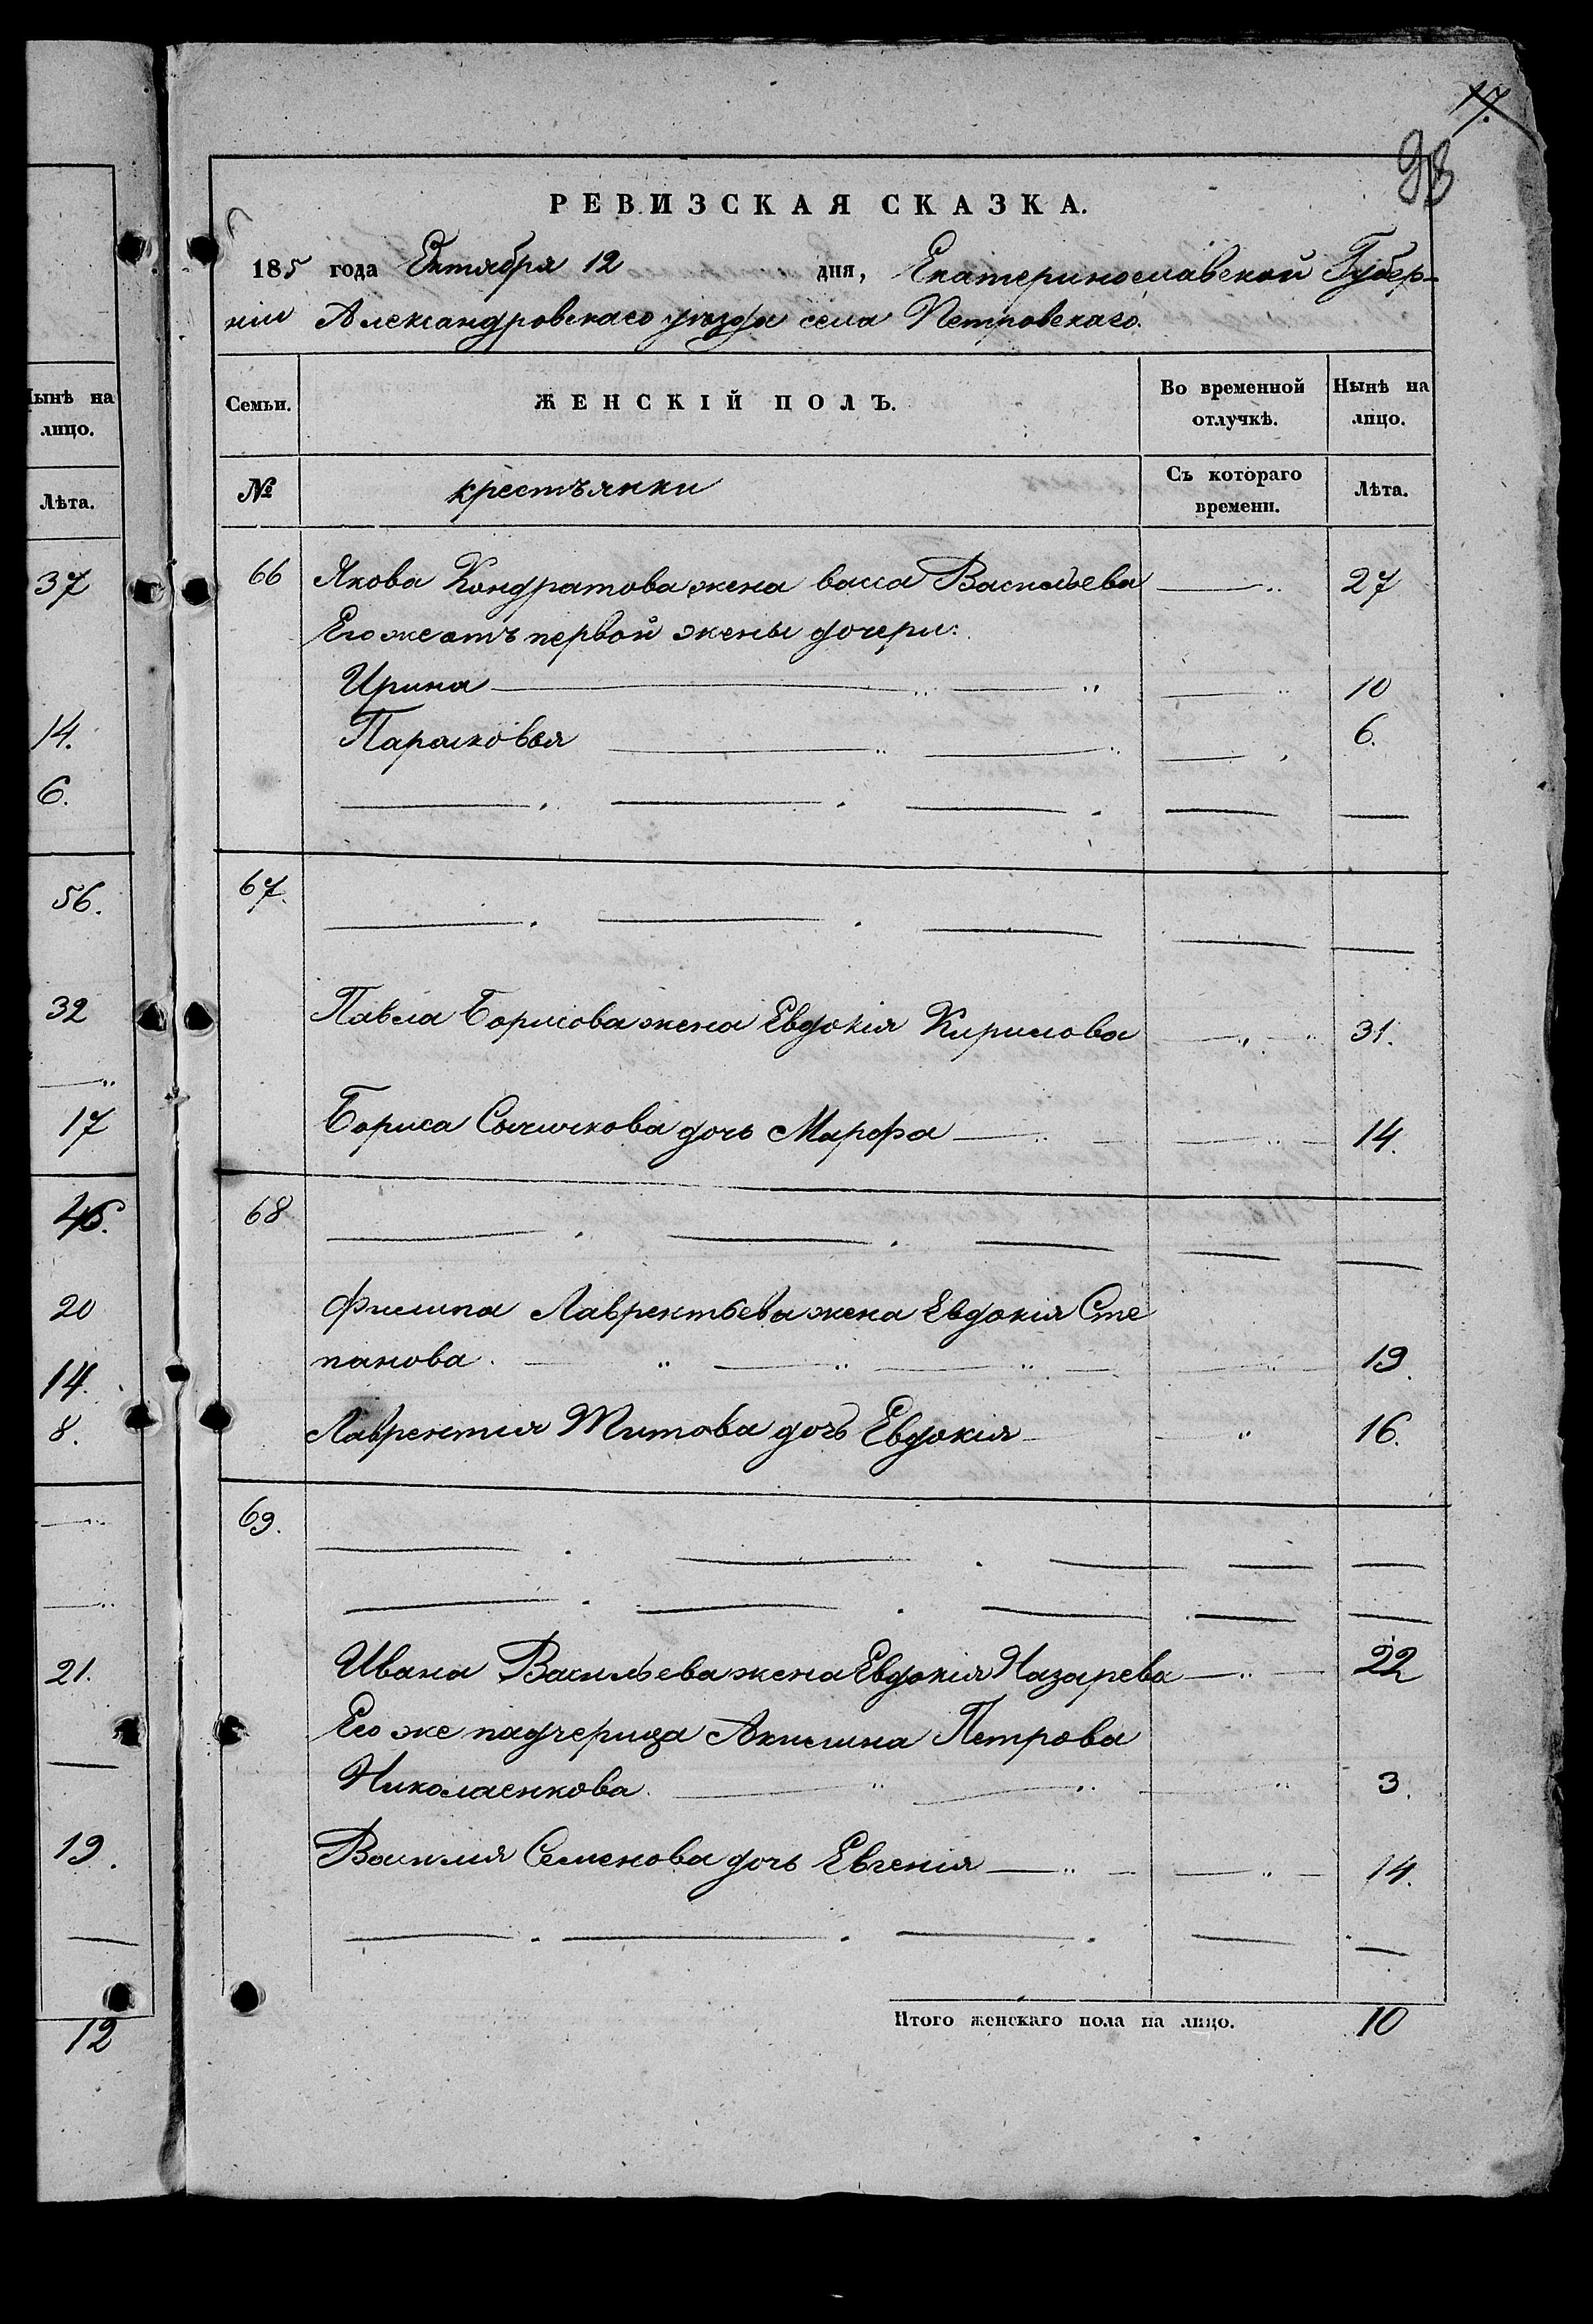 17.
98
РЕВИЗСКАЯ СКАЗКА.
185 года Октября 12 дня, Екатеринославской Губер-
ніи Александровскаго уѣзда села Петровскаго.
Нынѣ на лицо.
Лѣта.
37
14.
6.
56.
32
17
46.
20
14.
8.
21.
19.
12
Семьи. ЖЕНСКІЙ ПОЛЪ. Во временной отлучкѣ. Нынѣ на лицо.
№ крестьянки Съ котораго времени. Лѣта.
66 Якова Кондратова жена васса Васильева 27
Его же отъ первой жены дочери:
Ирина 10
Парасковья 6.
67.
Павла Борисова жена Евдокія Кирилова 31.
Бориса дочь Марфа 14.
68
Филипа Лаврентьева жена Евдокія Сте
панова. 19.
Лаврентія Титова дочь Евдокія 16.
69.
Ивана Васильева жена Евдокія Назарева 22
Его же падчерица Акилина Петрова
Николаенкова. 3.
Василія Семенова дочь Евгенія 14.
Итого женскаго пола на лицо. 10